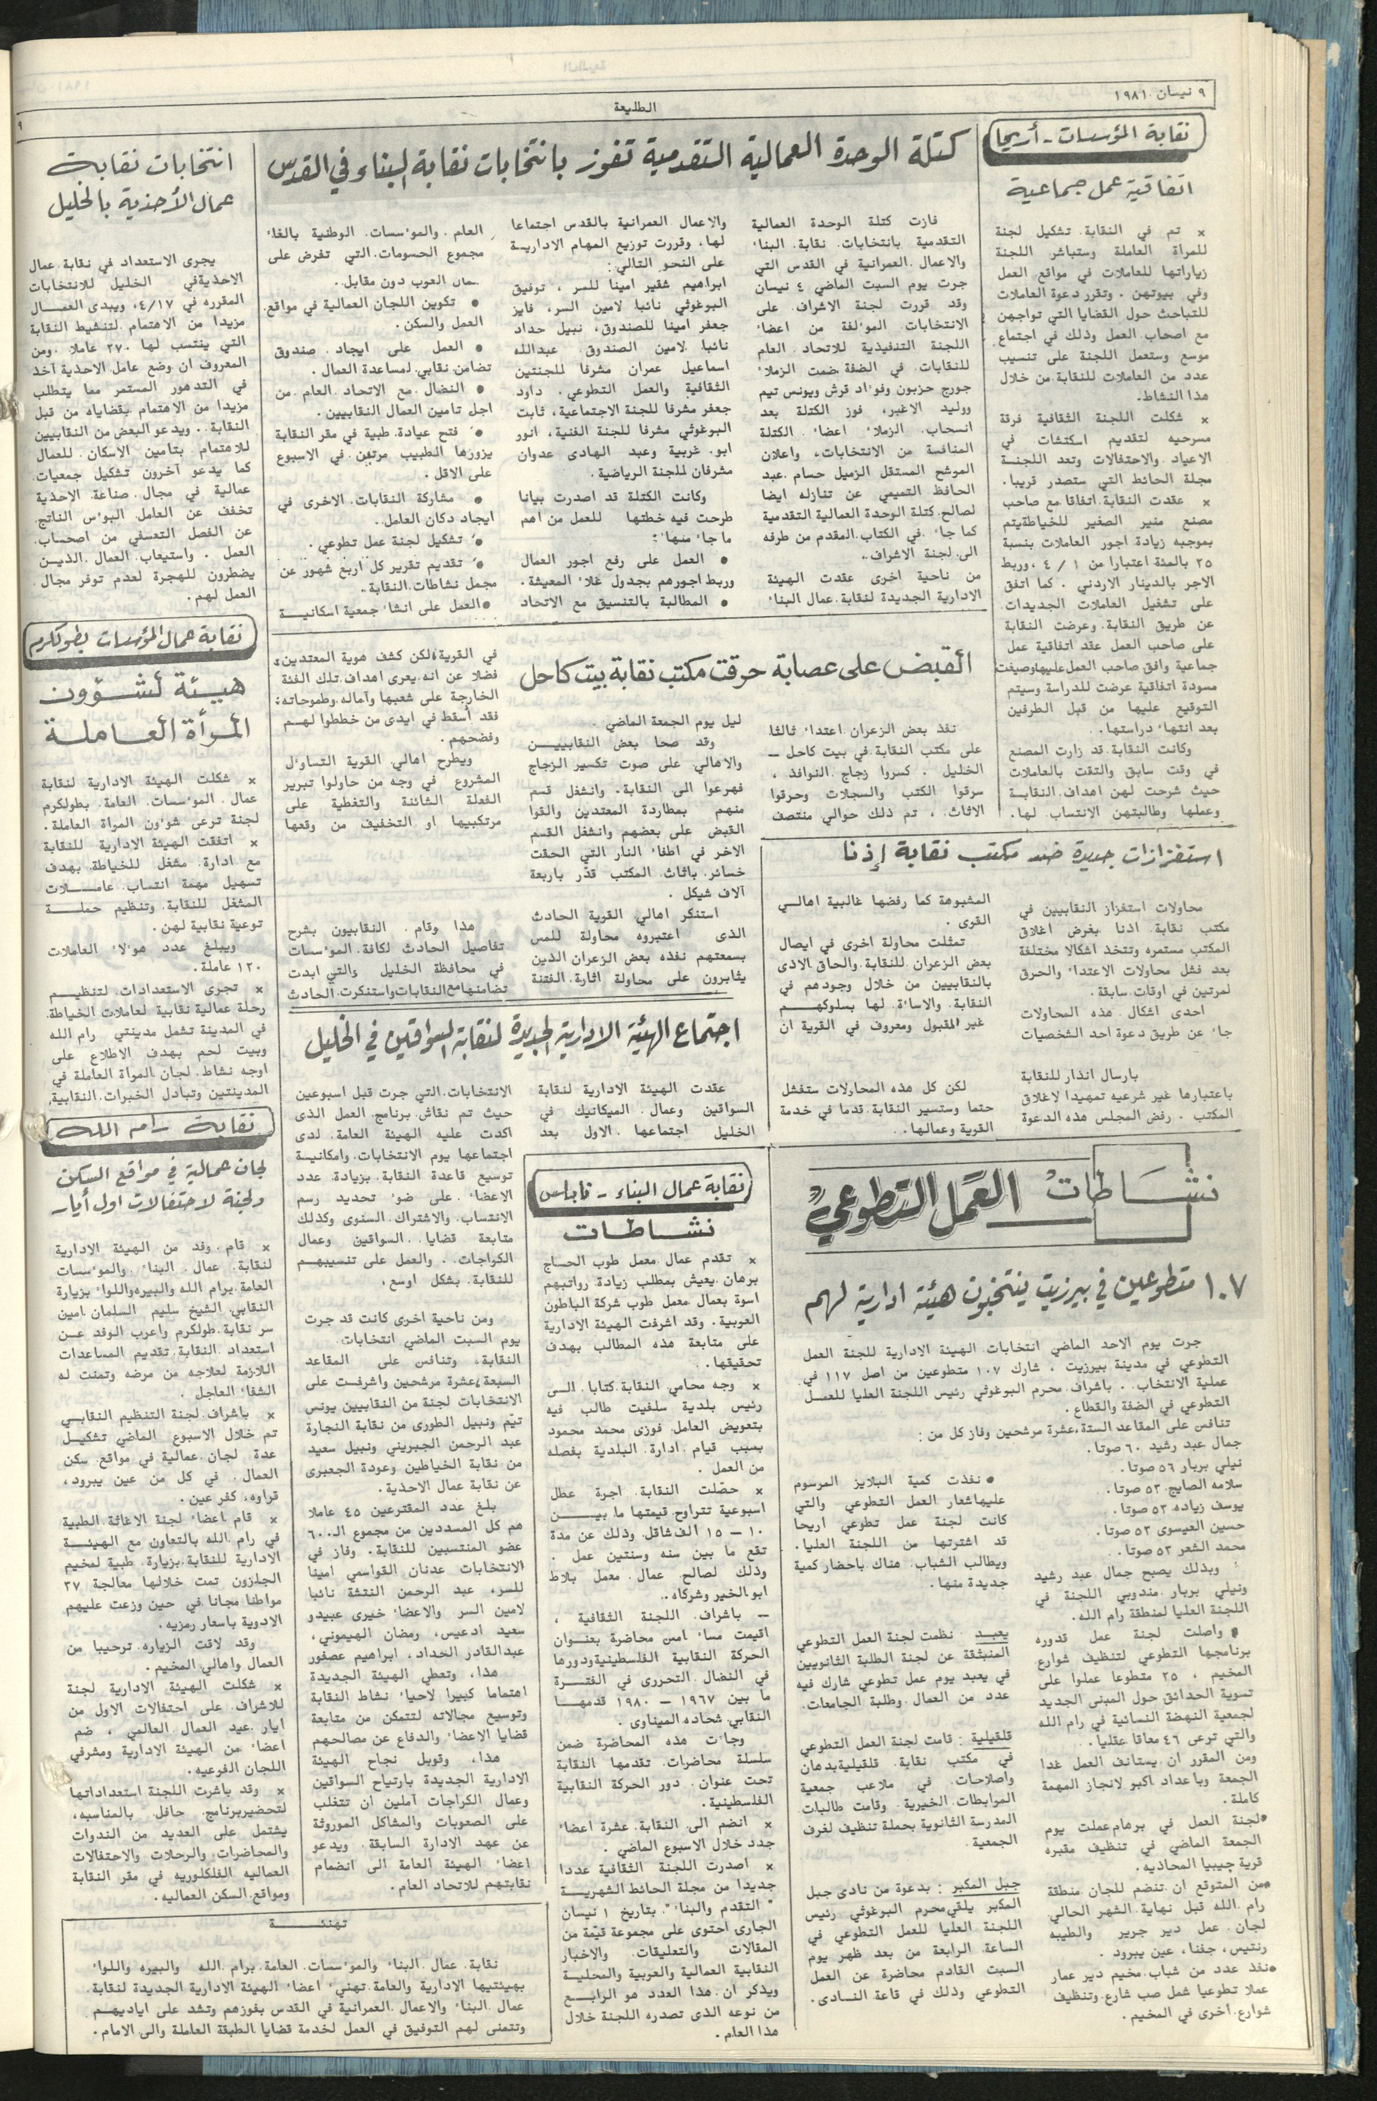 ٩ نيسان ١٩٨١
الطليعة
٩
نقابة المؤسسات - أريحا
اتفاقية عمل جماعية
× تم في النقابة تشكيل لجنة
للمرأة العاملة وستباشر اللجنة
زياراتها للعاملات في مواقع العمل
وفي بيوتهن . وتقرر دعوة العاملات
للتباحث حول القضايا التي تواجهن
مع اصحاب العمل وذلك في اجتماع
موسع وستعمل اللجنة على تنسيب
عدد من العاملات للنقابة من خلال
هذا النشاط.
× شكلت اللجنة الثقافية فرقة
مسرحيه لتقديم اسكتشات في
الاعياد والاحتفالات وتعد اللجنة
مجلة الحائط التي ستصدر قريبا.
× عقدت النقابة اتفاقا مع صاحب
مصنع منير الصغير للخياطةيتم
بموجبه زيادة اجور العاملات بنسبة
٢٥ بالمئة اعتبارا من ١ / ٤ ، وربط
الاجر بالدينار الاردني . كما اتفق
على تشغيل العاملات الجديدات
عن طريق النقابة وعرضت النقابة
على صاحب العمل عقد اتفاقية عمل
جماعية وافق صاحب العمل عليهاوصيغت
مسودة اتفاقية عرضت للدراسة وسيتم
التوقيع عليها من قبل الطرفين
بعد انتهاء دراستها.
وكانت النقابة قد زارت المصنع
في وقت سابق والتقت بالعاملات
حيث شرحت لهن اهداف النقابة
وعملها وطالبتهن الانتساب لها.
كتلة الوحدة العمالية التقدمية تفوز بانتخابات نقابة البناء في القدس
فازت كتلة الوحدة العمالية
التقدمية بانتخابات نقابة البناء
والاعمال العمرانية في القدس التي
جرت يوم السبت الماضي ٤ نيسان
وقد قررت لجنة الاشراف على
الانتخابات المؤلفة من اعضاء
اللجنة التنفيذية للاتحاد العام
للنقابات في الضفة ضمت الزملاء
جورج حزبون وفؤاد قرش ويونس تيم
ووليد الاغبر، فوز الكتلة بعد
انسحاب الزملاء اعضاء الكتلة
المنافسة من الانتخابات، واعلان
المرشح المستقل الزميل حسام عبد
الحافظ التميمي عن تنازله ايضا
لصالح كتلة الوحدة العمالية التقدمية
كما جاء في الكتاب المقدم من طرفه
الى لجنة الاشراف.
من ناحية اخرى عقدت الهيئة
الادارية الجديدة لنقابة عمال البناء
والاعمال العمرانية بالقدس اجتماعا
لها، وقررت توزيع المهام الادارية
على النحو التالي:
ابراهيم شقير امينا للسر ، توفيق
البرغوثي نائبا لامين السر، فايز
جعفر امينا للصندوق، نبيل حداد
نائبا لامين الصندوق عبدالله
اسماعيل عمران مشرفا للجنتين
الثقافية والعمل التطوعي. داود
جعفر مشرفا للجنة الاجتماعية، ثابت
البرغوثي مشرفا للجنة الفنية، انور
ابو غربية وعبد الهادى عدوان
مشرفان للجنة الرياضية.
وكانت الكتلة قد اصدرت بيانا
طرحت فيه خطتها للعمل من اهم
ما جاء منها:
• العمل على رفع اجور العمال
وربط اجورهم بجدول غلاء المعيشة.
• المطالبة بالتنسيق مع الاتحاد
العام والمؤسسات الوطنية بالغاء
مجموع الحسومات التي تفرض على
العرب دون مقابل.
• تكوين اللجان العمالية في مواقع
العمل والسكن.
• العمل على ايجاد صندوق
تضامن نقابي لمساعدة العمال.
• النضال مع الاتحاد العام من
اجل تامين العمال النقابيين.
• فتح عيادة طبية في مقر النقابة
يزورها الطبيب مرتين في الاسبوع
على الاقل.
• مشاركة النقابات الاخرى في
ايجاد دكان العامل.
• تشكيل لجنة عمل تطوعي.
• تقديم تقرير كل اربع شهور عن
مجمل نشاطات النقابة.
• العمل على انشاء جمعية اسكانية
انتخابات نقابة
عمال الأحذية بالخليل
يجرى الاستعداد في نقابة عمال
الاحذيةفي الخليل للانتخابات
المقرره في ٤/١٧، ويبدى العمال
مزيدا من الاهتمام لتنشيط النقابة
التي ينتسب لها ٢٧٠ عاملا ومن
المعروف ان وضع عامل الاحذية آخذ
في التدهور المستمر مما يتطلب
مزيدا من الاهتمام بقضاياه من قبل
النقابة. ويدعو البعض من النقابيين
للاهتمام بتامين الاسكان للعمال
كما يدعو آخرون تشكيل جمعيات
عمالية في مجال صناعة الاحذية
تخفف عن العامل البؤس الناتج
عن الفصل التعسفي من اصحاب
العمل . واستيعاب العمال الذين
يضطرون للهجرة لعدم توفر مجال
العمل لهم.
نقابة عمال المؤسسات بطولكرم
هيئة لشؤون
المرأة العاملة
× شكلت الهيئة الادارية لنقابة
عمال المؤسسات العامة بطولكرم
لجنة ترعى شؤون المرأة العاملة.
× اتفقت الهيئة الادارية للنقابة
مع ادارة مشغل للخياطة بهدف
تسهيل مهمة انتساب عاملات
المشغل للنقابة وتنظيم حملة
توعية نقابية لهن.
ويبلغ عدد هؤلاء العاملات
١٢٠ عاملة.
× تجرى الاستعدادات لتنظيم
رحلة عمالية نقابية لعاملات الخياطة
في المدينة تشمل مدينتي رام الله
وبيت لحم بهدف الاطلاع على
اوجه نشاط لجان المرأة العاملة في
المدينتين وتبادل الخبرات النقابية.
القبض على عصابة حرقت مكتب نقابة بيت كاحل
نفذ بعض الزعران اعتداء ثالثا
على مكتب النقابة في بيت كاحل –
الخليل . كسروا زجاج النوافذ ،
سرقوا الكتب والسجلات وحرقوا
الاثاث ، تم ذلك حوالي منتصف
ليل يوم الجمعة الماضي .
وقد صحا بعض النقابيين
والاهالي على صوت تكسير الزجاج
فهرعوا الى النقابة، وانشغل قسم
منهم بمطاردة المعتدين والقوا
القبض على بعضهم وانشغل القسم
الاخر في اطفاء النار التي الحقت
خسائر باثاث المكتب قدّر باربعة
آلاف شيكل .
استنكر اهالي القرية الحادث
الذى اعتبروه محاولة للمس
بسمعتهم نفذه بعض الزعران الذين
يثابرون على محاولة اثارة الفتنة
في القرية، لكن كشف هوية المعتدين،
فضلا عن انه يعرى اهداف تلك الفئة
الخارجة على شعبها وآماله وطموحاته،
فقد أسقط في ايدى من خططوا لهم
وفضحهم .
ويطرح اهالي القرية التساؤل
المشروع في وجه من حاولوا تبرير
الفعلة الشائنة والتغطية على
مرتكبيها او التخفيف من وقعها
هذا وقام النقابيون بشرح
تفاصيل الحادث لكافة المؤسسات
في محافظة الخليل والتي ابدت
تضامنها مع النقابات واستنكرت الحادث
استفزازات جديدة ضد مكتب نقابة إذنا
محاولات استفزاز النقابيين في
مكتب نقابة اذنا بغرض اغلاق
المكتب مستمره وتتخذ اشكالا مختلفة
بعد فشل محاولات الاعتداء والحرق
لمرتين في اوقات سابقة.
احدى اشكال هذه المحاولات
جاء عن طريق دعوة احد الشخصيات
بارسال انذار للنقابة
باعتبارها غير شرعيه تمهيدا لاغلاق
المكتب . رفض المجلس هذه الدعوة
المشبوهة كما رفضها غالبية اهالي
القرى.
تمثلت محاولة اخرى في ايصال
بعض الزعران للنقابة والحاق الاذى
بالنقابيين من خلال وجودهم في
النقابة والاساءة لها بسلوكهم
غير المقبول ومعروف في القرية ان
لكن كل هذه المحاولات ستفشل
حتما وستسير النقابة قدما في خدمة
القرية وعمالها.
اجتماع الهيئة الادارية الجديدة لنقابة السواقين في الخليل
عقدت الهيئة الادارية لنقابة
السواقين وعمال الميكانيك في
الخليل اجتماعها الاول بعد
الانتخابات التي جرت قبل اسبوعين
حيث تم نقاش برنامج العمل الذى
اكدت عليه الهيئة العامة لدى
اجتماعها يوم الانتخابات وامكانية
توسيع قاعدة النقابة بزيادة عدد
الاعضاء على ضوء تحديد رسم
الانتساب والاشتراك السنوى وكذلك
متابعة قضايا السواقين وعمال
الكراجات والعمل على تنسيبهم
للنقابة بشكل اوسع،
ومن ناحية اخرى كانت قد جرت
يوم السبت الماضي انتخابات
النقابة، وتنافس على المقاعد
السبعة، عشرة مرشحين واشرفت على
الانتخابات لجنة من النقابيين يونس
تيّم ونبيل الطورى من نقابة النجارة
عبد الرحمن الجبريني ونبيل سعيد
من نقابة الخياطين وعودة الجعبرى
عن نقابة عمال الاحذية.
بلغ عدد المقترعين ٤٥ عاملا
هم كل المسددين من مجموع الـ ٦٠٠
عضو المنتسبين للنقابة. وفاز في
الانتخابات عدنان القواسمي امينا
للسر، عبد الرحمن النتشة نائبا
لامين السر والاعضاء خيرى عبيدو
سعيد ادعيس، رمضان الهيموني،
عبدالقادر الحداد، ابراهيم عصفور
هذا، وتعطي الهيئة الجديدة
اهتماما كبيرا لاحياء نشاط النقابة
وتوسيع مجالاته لتتمكن من متابعة
قضايا الاعضاء والدفاع عن مصالحهم
هذا، وقوبل نجاح الهيئة
الادارية الجديدة بارتياح السواقين
وعمال الكراجات آملين ان تتغلب
على الصعوبات والمشاكل الموروثة
عن عهد الادارة السابقة. ويدعو
اعضاء الهيئة العامة الى انضمام
نقابتهم للاتحاد العام.
نقابة رام الله
لجان عمالية في مواقع السكن
ولجنة لاحتفالات اول أيار
× قام وفد من الهيئة الادارية
لنقابة عمال البناء والمؤسسات
العامة برام الله والبيره واللواء بزيارة
النقابي الشيخ سليم السلمان امين
سر نقابة طولكرم واعرب الوفد عن
استعداد النقابة تقديم المساعدات
اللازمة لعلاجه من مرضه وتمنت له
الشفاء العاجل.
× باشراف لجنة التنظيم النقابي
تم خلال الاسبوع الماضي تشكيل
عدة لجان عمالية في مواقع سكن
العمال في كل من عين يبرود،
قراوه، كفر عين.
× قام اعضاء لجنة الاغاثة الطبية
في رام الله بالتعاون مع الهيئة
الادارية للنقابة بزيارة طبية لمخيم
الجلزون تمت خلالها معالجة ٢٧
مواطنا مجانا في حين وزعت عليهم
الادوية باسعار رمزيه.
وقد لاقت الزياره ترحيبا من
العمال واهالي المخيم.
× شكلت الهيئة الادارية لجنة
للاشراف على احتفالات الاول من
ايار عيد العمال العالمي ، ضم
اعضاء من الهيئة الادارية ومشرفي
اللجان الفرعيه.
× وقد باشرت اللجنة استعداداتها
لتحضيربرنامج حافل بالمناسبه،
يشتمل على العديد من الندوات
والمحاضرات والرحلات والاحتفالات
العماليه الفلكلوريه في مقر النقابة
ومواقع السكن العماليه.
نقابة عمال البناء - نابلس
نشاطات
× تقدم عمال معمل طوب الحاج
برهان يعيش بمطلب زيادة رواتبهم
اسوة بعمال معمل طوب شركة الباطون
العربية. وقد اشرفت الهيئة الادارية
على متابعة هذه المطالب بهدف
تحقيقها.
× وجه محامي النقابة كتابا الى
رئيس بلدية سلفيت طالب فيه
بتعويض العامل فوزى محمد محمود
بسبب قيام ادارة البلدية بفصله
من العمل.
× حصّلت النقابة اجرة عطل
اسبوعية تتراوح قيمتها ما بين
١٠ – ١٥ الف شاقل وذلك عن مدة
تقع ما بين سنه وسنتين عمل.
وذلك لصالح عمال معمل بلاط
ابو الخير وشركاه.
– باشراف اللجنة الثقافية ،
اقيمت مساء امس محاضرة بعنوان
الحركة النقابية الفلسطينيةودورها
في النضال التحررى في الفترة
ما بين ١٩٦٧ – ١٩٨٠ قدمها
النقابي شحاده الميناوى.
وجاءت هذه المحاضرة ضمن
سلسلة محاضرات تقدمها النقابة
تحت عنوان دور الحركة النقابية
الفلسطينية.
× انضم الى النقابة عشرة اعضاء
جدد خلال الاسبوع الماضي.
× اصدرت اللجنة الثقافية عددا
جديدا من مجلة الحائط الشهرية
" التقدم والبناء" بتاريخ ١ نيسان
الجارى احتوى على مجموعة قيّمة من
المقالات والتعليقات والاخبار
النقابية العمالية والعربية والمحلية
ويذكر ان هذا العدد هو الرابع
من نوعه الذى تصدره اللجنة خلال
هذا العام.
نشاطات العمل التطوعي
١٠٧ متطوعين في بيرزيت ينتخبون هيئة ادارية لهم
جرت يوم الاحد الماضي انتخابات الهيئة الادارية للجنة العمل
التطوعي في مدينة بيرزيت . شارك ١٠٧ متطوعين من اصل ١١٧ في
عملية الانتخاب . باشراف محرم البرغوثي رئيس اللجنة العليا للعمل
التطوعي في الضفة والقطاع.
تنافس على المقاعد الستة،عشرة مرشحين وفاز كل من :
جمال عبد رشيد ٦٠ صوتا.
نيلي بربار ٥٦ صوتا.
سلامه الصايج ٥٣ صوتا.
يوسف زياده ٥٣ صوتا.
حسين العيسوى ٥٣ صوتا.
محمد الشعر ٥٣ صوتا.
وبذلك يصبح جمال عبد رشيد
ونيلي بربار مندوبي اللجنة في
اللجنة العليا لمنطقة رام الله.
• واصلت لجنة عمل قدوره
برنامجها التطوعي لتنظيف شوارع
المخيم . ٢٥ متطوعا عملوا على
تسوية الحدائق حول المبنى الجديد
لجمعية النهضة النسائية في رام الله
والتي ترعى ٤٦ معاقا عقليا.
ومن المقرر ان يستأنف العمل غدا
الجمعة وباعداد اكبر لانجاز المهمة
كاملة.
• لجنة العمل في برهام عملت يوم
الجمعة الماضي في تنظيف مقبره
قرية جيبيا المحاذيه.
• من المتوقع ان تنضم للجان منطقة
رام الله قبل نهاية الشهر الحالي
لجان عمل دير جرير والطيبه
رنتيس، جفنا، عين يبرود .
• نفذ عدد من شباب مخيم دير عمار
عملا تطوعيا شمل صب شارع وتنظيف
شوارع اخرى في المخيم.
• نفذت كمية البلايز المرسوم
عليهاشعار العمل التطوعي والتي
كانت لجنة عمل تطوعي اريحا
قد اشترتها من اللجنة العليا.
ويطالب الشباب هناك باحضار كمية
جديدة منها.
يعبد نظمت لجنة العمل التطوعي
المنبثقة عن لجنة الطلبة الثانويين
في يعبد يوم عمل تطوعي شارك فيه
عدد من العمال وطلبة الجامعات.
قلقيلية : قامت لجنة العمل التطوعي
في مكتب نقابة قلقيليةبدهان
واصلاحات في ملاعب جمعية
المرابطات الخيرية . وقامت طالبات
المدرسة الثانوية بحملة تنظيف لغرف
الجمعية.
جبل المكبر : بدعوة من نادى جبل
المكبر يلقي محرم البرغوثي رئيس
اللجنة العليا للعمل التطوعي في
الساعة الرابعة من بعد ظهر يوم
السبت القادم محاضرة عن العمل
التطوعي وذلك في قاعة النادى.
تهنئة
نقابة عمال البناء والمؤسسات العامة برام الله والبيره واللواء
بهيئتيها الادارية والعامة تهنيء اعضاء الهيئة الادارية الجديدة لنقابة
عمال البناء والاعمال العمرانية في القدس بفوزهم وتشد على اياديهم
وتتمنى لهم التوفيق في العمل لخدمة قضايا الطبقة العاملة والى الامام.